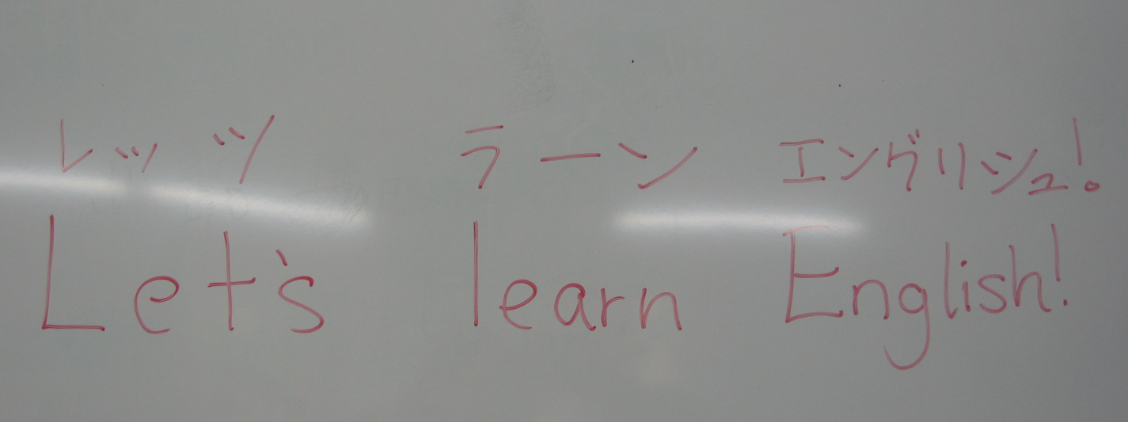 レッツ ラーン エングリシュ!
Let's learn English!